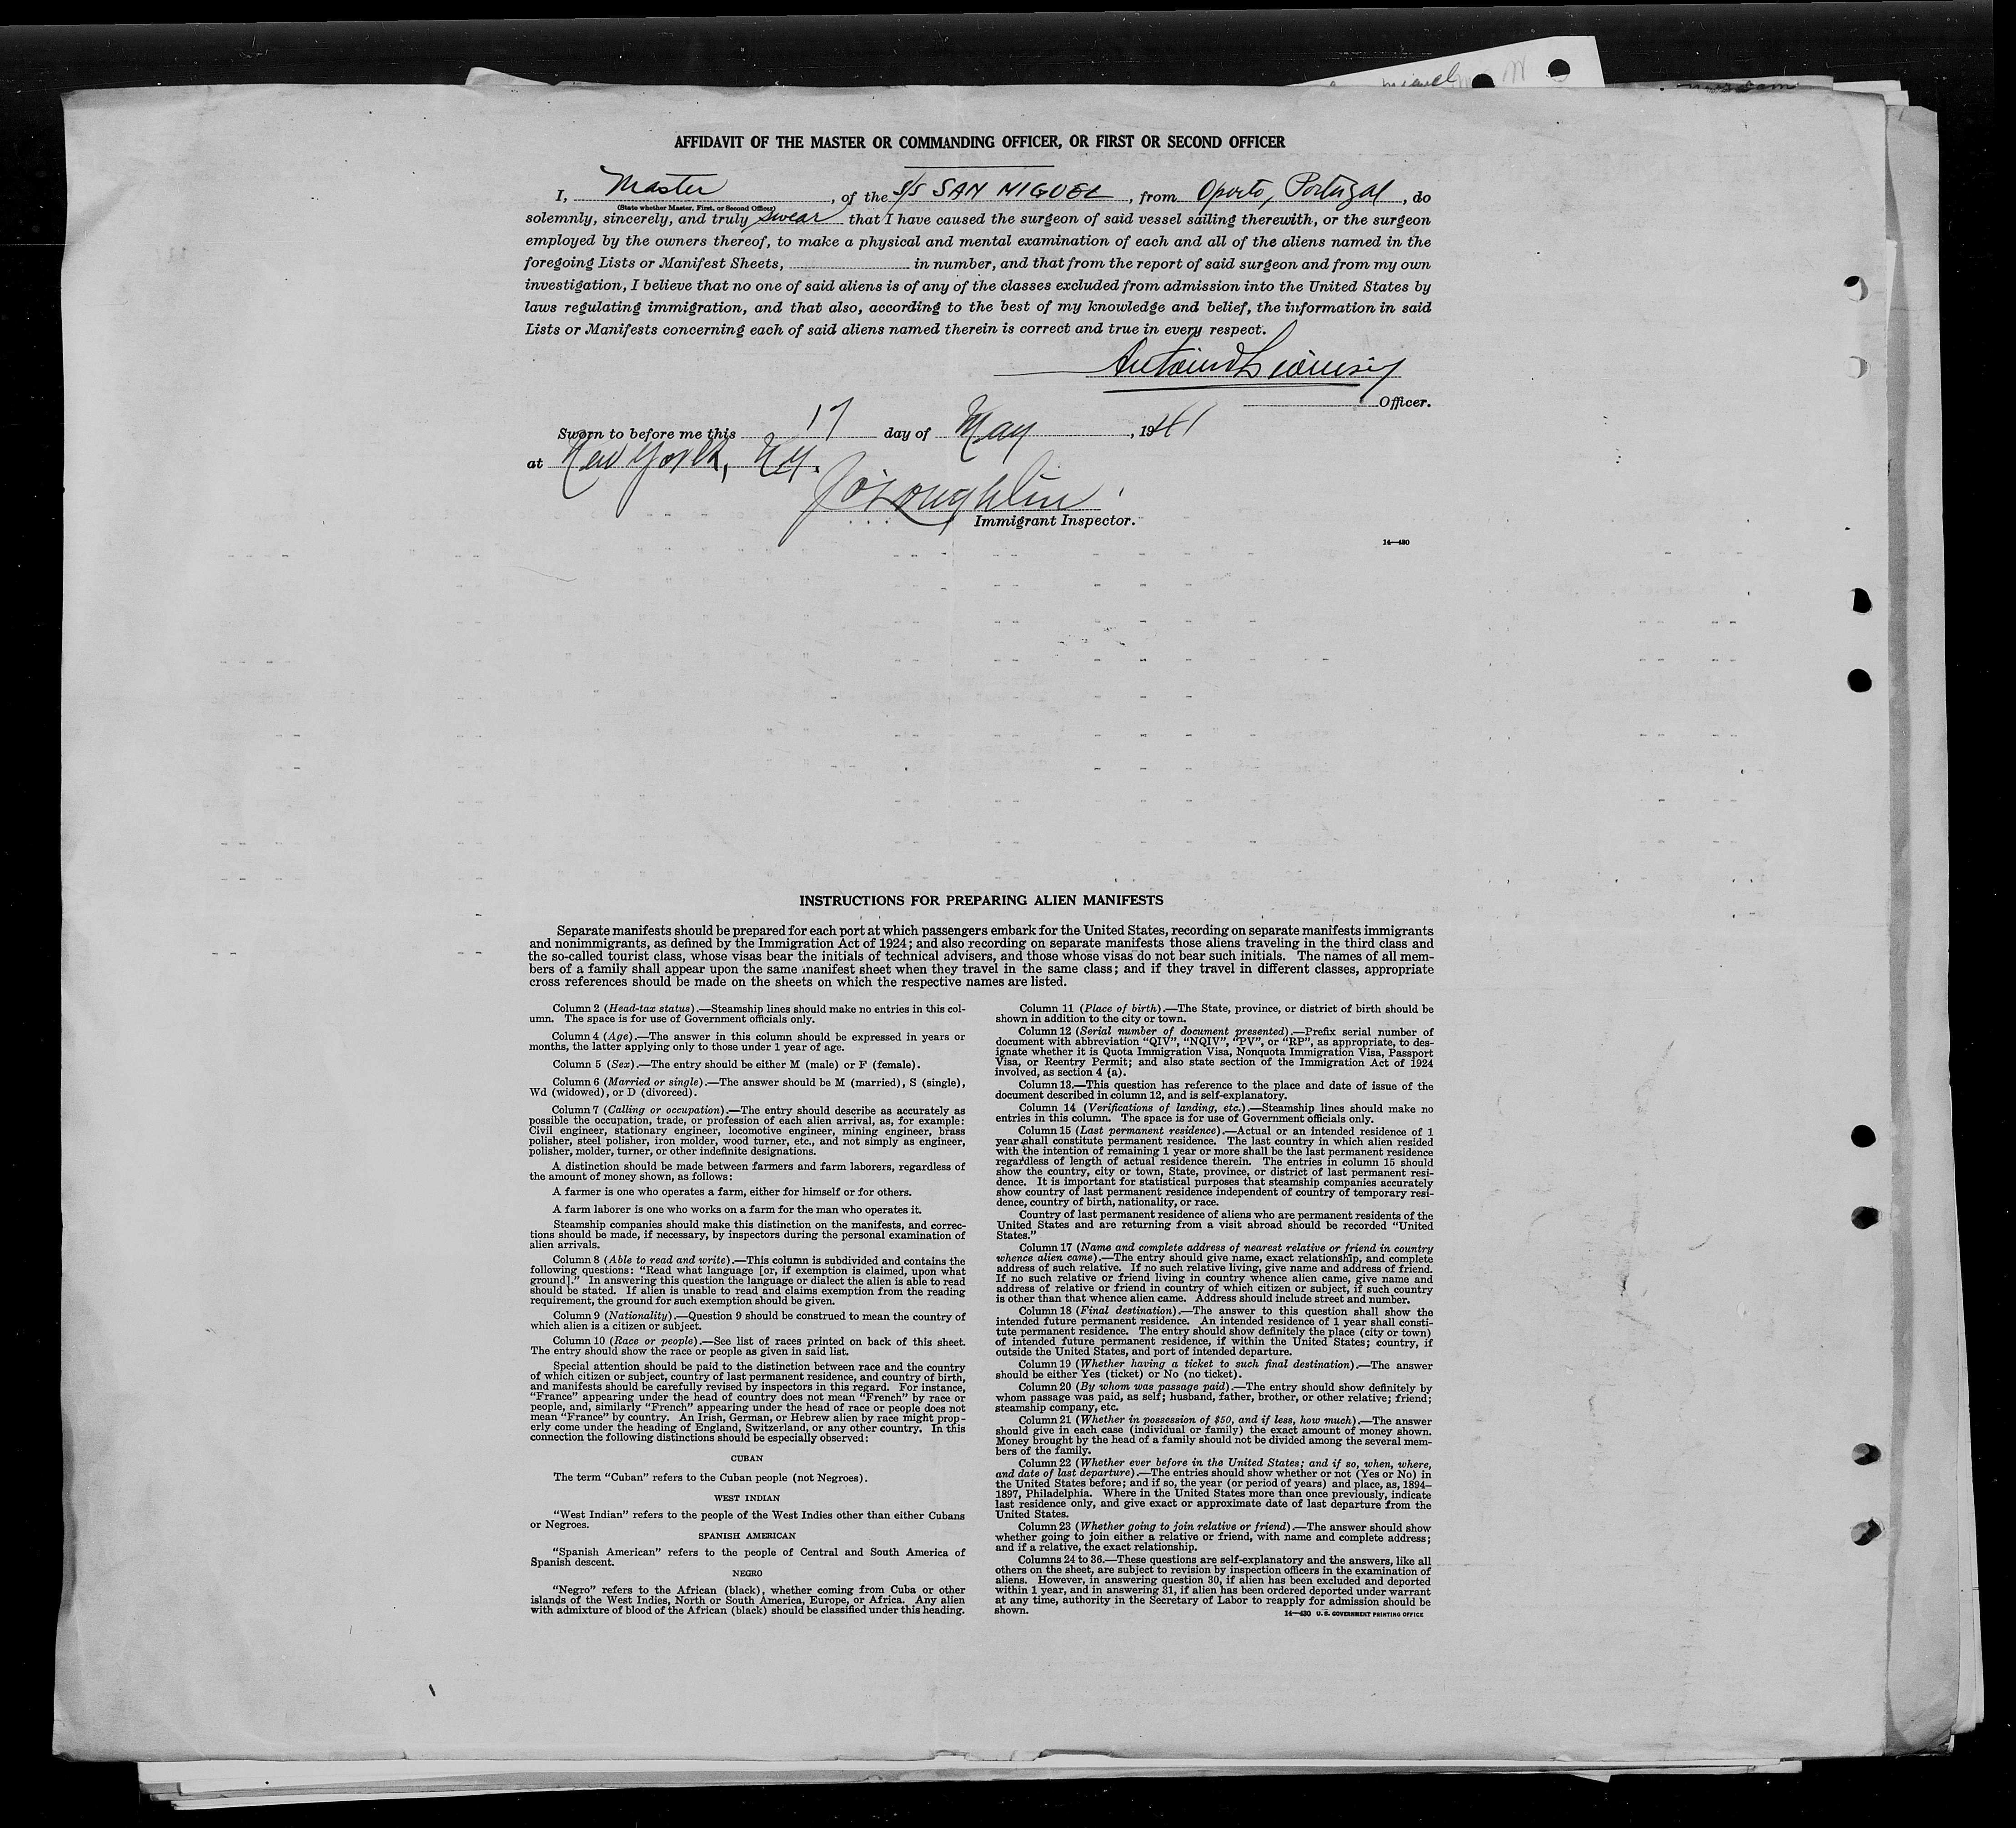 AFFIDAVIT OF THE MASTER OR COMMANDING OFFICER, OR FIRST OR SECOND OFFICER
I, Master, of the S/S SAN MIGUEL, from Oporto, Portugal, do
(State whether Master, First, or Second Officer)
solemnly, sincerely, and truly swear that I have caused the surgeon of said vessel sailing therewith, or the surgeon
employed by the owners thereof, to make a physical and mental examination of each and all of the aliens named in the
foregoing Lists or Manifest Sheets, in number, and that from the report of said surgeon and from my own
investigation, I believe that no one of said aliens is of any of the classes excluded from admission into the United States by
laws regulating immigration, and that also, according to the best of my knowledge and belief, the information in said
Lists or Manifests concerning each of said aliens named therein is correct and true in every respect.
Officer.
Sworn to before me this 17 day of May, 1941
at New York, N.Y.
J O'Loughlin
Immigrant Inspector.
14—430
INSTRUCTIONS FOR PREPARING ALIEN MANIFESTS
Separate manifests should be prepared for each port at which passengers embark for the United States, recording on separate manifests immigrants
and nonimmigrants, as defined by the Immigration Act of 1924; and also recording on separate manifests those aliens traveling in the third class and
the so-called tourist class, whose visas bear the initials of technical advisers, and those whose visas do not bear such initials. The names of all mem-
bers of a family shall appear upon the same manifest sheet when they travel in the same class; and if they travel in different classes, appropriate
cross references should be made on the sheets on which the respective names are listed.
Column 2 (Head-tax status).—Steamship lines should make no entries in this col-
umn. The space is for use of Government officials only.
Column 4 (Age).—The answer in this column should be expressed in years or
months, the latter applying only to those under 1 year of age.
Column 5 (Sex).—The entry should be either M (male) or F (female).
Column 6 (Married or single).—The answer should be M (married), S (single),
Wd (widowed), or D (divorced).
Column 7 (Calling or occupation).—The entry should describe as accurately as
possible the occupation, trade, or profession of each alien arrival, as, for example:
Civil engineer, stationary engineer, locomotive engineer, mining engineer, brass
polisher, steel polisher, iron molder, wood turner, etc., and not simply as engineer,
polisher, molder, turner, or other indefinite designations.
A distinction should be made between farmers and farm laborers, regardless of
the amount of money shown, as follows:
A farmer is one who operates a farm, either for himself or for others.
A farm laborer is one who works on a farm for the man who operates it.
Steamship companies should make this distinction on the manifests, and correc-
tions should be made, if necessary, by inspectors during the personal examination of
alien arrivals.
Column 8 (Able to read and write).—This column is subdivided and contains the
following questions: "Read what language [or, if exemption is claimed, upon what
ground]." In answering this question the language or dialect the alien is able to read
should be stated. If alien is unable to read and claims exemption from the reading
requirement, the ground for such exemption should be given.
Column 9 (Nationality).—Question 9 should be construed to mean the country of
which alien is a citizen or subject.
Column 10 (Race or people).—See list of races printed on back of this sheet.
The entry should show the race or people as given in said list.
Special attention should be paid to the distinction between race and the country
of which citizen or subject, country of last permanent residence, and country of birth,
and manifests should be carefully revised by inspectors in this regard. For instance,
"France" appearing under the head of country does not mean "French" by race or
people, and, similarly "French" appearing under the head of race or people does not
mean "France" by country. An Irish, German, or Hebrew alien by race might prop-
erly come under the heading of England, Switzerland, or any other country. In this
connection the following distinctions should be especially observed:
CUBAN
The term "Cuban" refers to the Cuban people (not Negroes).
WEST INDIAN
"West Indian" refers to the people of the West Indies other than either Cubans
or Negroes.
SPANISH AMERICAN
"Spanish American" refers to the people of Central and South America of
Spanish descent.
NEGRO
"Negro" refers to the African (black), whether coming from Cuba or other
islands of the West Indies, North or South America, Europe, or Africa. Any alien
with admixture of blood of the African (black) should be classified under this heading.
Column 11 (Place of birth).—The State, province, or district of birth should be
shown in addition to the city or town.
Column 12 (Serial number of document presented).—Prefix serial number of
document with abbreviation "QIV", "NQIV", "PV", or "RP", as appropriate, to des-
ignate whether it is Quota Immigration Visa, Nonquota Immigration Visa, Passport
Visa, or Reentry Permit; and also state section of the Immigration Act of 1924
involved, as section 4 (a).
Column 13.—This question has reference to the place and date of issue of the
document described in column 12, and is self-explanatory.
Column 14 (Verifications of landing, etc.).—Steamship lines should make no
entries in this column. The space is for use of Government officials only.
Column 15 (Last permanent residence).—Actual or an intended residence of 1
year shall constitute permanent residence. The last country in which alien resided
with the intention of remaining 1 year or more shall be the last permanent residence
regardless of length of actual residence therein. The entries in column 15 should
show the country, city or town, State, province, or district of last permanent resi-
dence. It is important for statistical purposes that steamship companies accurately
show country of last permanent residence independent of country of temporary resi-
dence, country of birth, nationality, or race.
Country of last permanent residence of aliens who are permanent residents of the
United States and are returning from a visit abroad should be recorded "United
States."
Column 17 (Name and complete address of nearest relative or friend in country
whence alien came).—The entry should give name, exact relationship, and complete
address of such relative. If no such relative living, give name and address of friend.
If no such relative or friend living in country whence alien came, give name and
address of relative or friend in country of which citizen or subject, if such country
is other than that whence alien came. Address should include street and number.
Column 18 (Final destination).—The answer to this question shall show the
intended future permanent residence. An intended residence of 1 year shall consti-
tute permanent residence. The entry should show definitely the place (city or town)
of intended future permanent residence, if within the United States; country, if
outside the United States, and port of intended departure.
Column 19 (Whether having a ticket to such final destination).—The answer
should be either Yes (ticket) or No (no ticket).
Column 20 (By whom was passage paid).—The entry should show definitely by
whom passage was paid, as self; husband, father, brother, or other relative; friend;
steamship company, etc.
Column 21 (Whether in possession of $50, and if less, how much).—The answer
should give in each case (individual or family) the exact amount of money shown.
Money brought by the head of a family should not be divided among the several mem-
bers of the family.
Column 22 (Whether ever before in the United States; and if so, when, where,
and date of last departure).—The entries should show whether or not (Yes or No) in
the United States before; and if so, the year (or period of years) and place, as, 1894–
1897, Philadelphia. Where in the United States more than once previously, indicate
last residence only, and give exact or approximate date of last departure from the
United States.
Column 23 (Whether going to join relative or friend).—The answer should show
whether going to join either a relative or friend, with name and complete address;
and if a relative, the exact relationship.
Columns 24 to 36.—These questions are self-explanatory and the answers, like all
others on the sheet, are subject to revision by inspection officers in the examination of
aliens. However, in answering question 30, if alien has been excluded and deported
within 1 year, and in answering 31, if alien has been ordered deported under warrant
at any time, authority in the Secretary of Labor to reapply for admission should be
shown.
14—430 U. S. GOVERNMENT PRINTING OFFICE